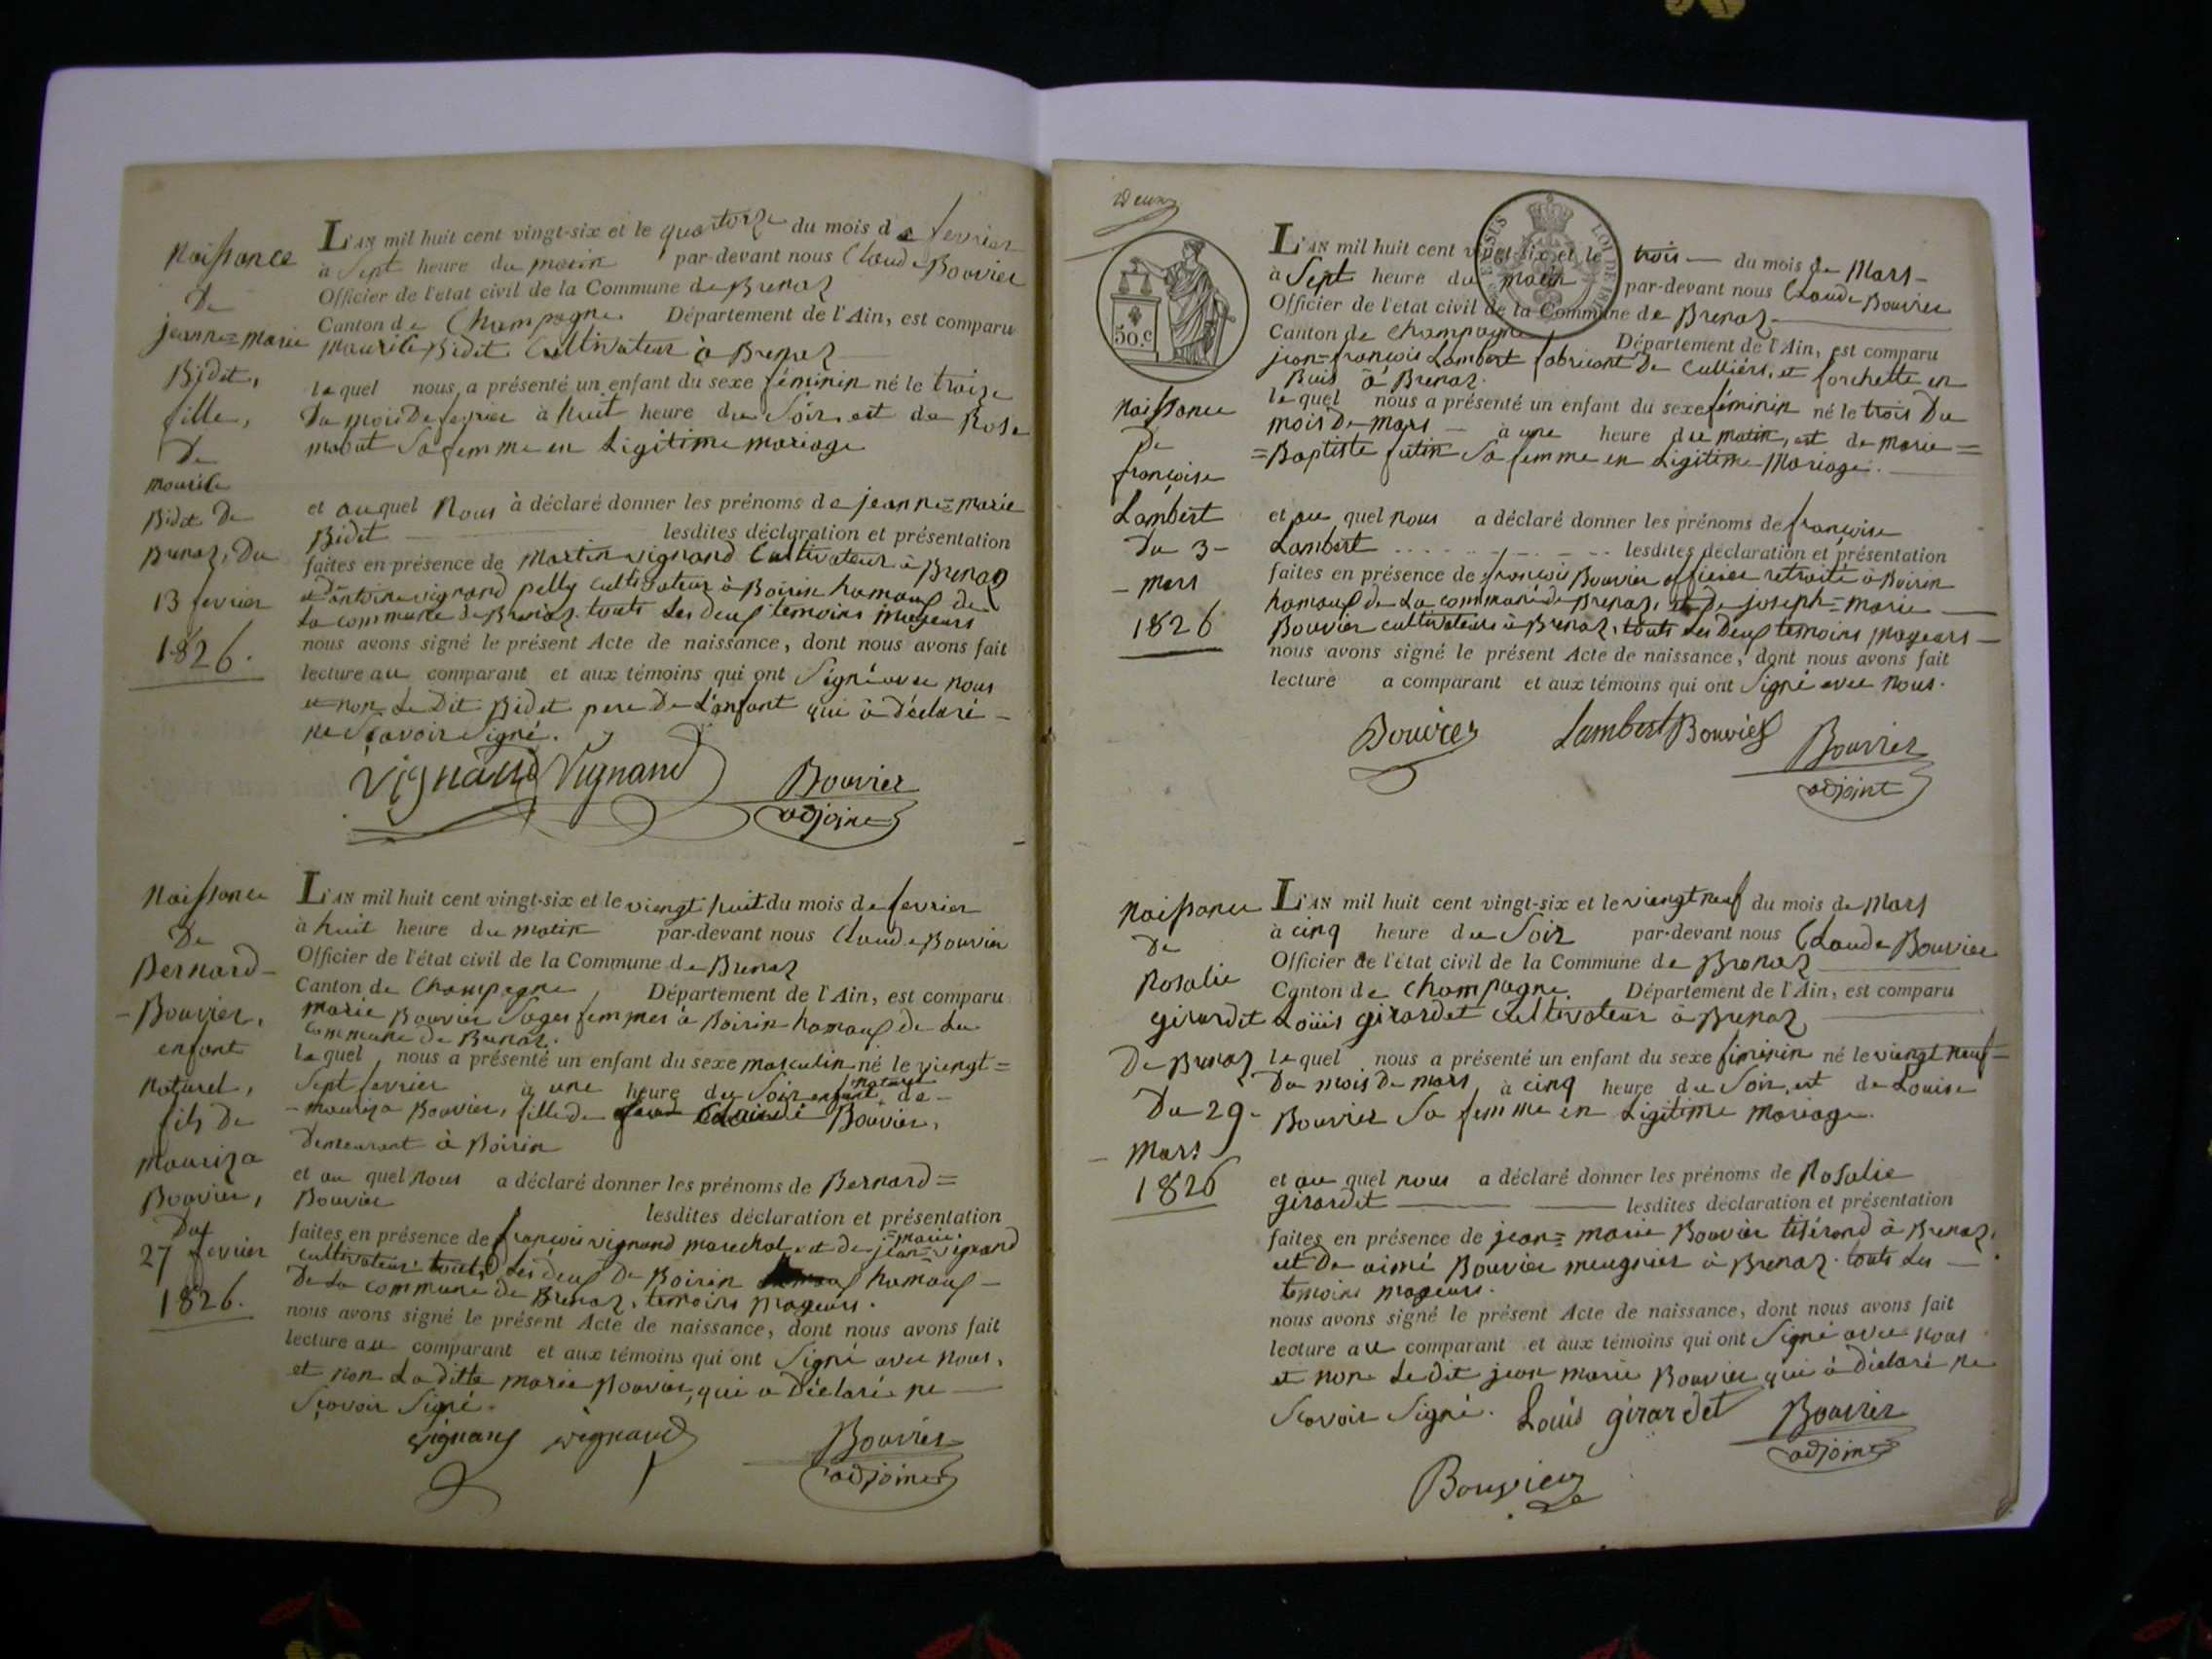 Naissance
De
jeanne=marie
Bidet,
fille,
De
mourise
Bidet De
Brenaz, Du
13 fevrier
1826.
L'AN mil huit cent vingt-six et le quatorze du mois de fevrier
à Sept heure du matin par-devant nous Claude Bouvier
Officier de l'etat civil de la Commune de Brenaz
Canton de Champagne Département de l'Ain, est comparu
Mourise Bidet Cultivateur à Brenaz
lequel nous a présenté un enfant du sexe féminin né le treize
Du mois De fevrier à huit heure du Soir et de Rose
mabut Sa femme en Ligitime mariage
et auquel Nous à déclaré donner les prénoms de jeanne=marie
Bidet lesdites déclaration et présentation
faites en présence de Martin vignand Cultivateur à Brenaz
et D'antoine vignand pelly cultivateur à Boirin hamaux de
La commune de Brenaz. touts Les deux temoins mageurs
nous avons signé le présent Acte de naissance, dont nous avons fait
lecture au comparant et aux témoins qui ont Signé avec nous
et non Le Dit Bidet pere De L'enfant qui à Déclaré -
ne Sçavoir Signé.
Vignand Vignand Bouvier
adjoint
Naissance
De
Bernard-
-Bouvier,
enfant
naturel,
fils de
Mouriza
Bouvier,
Du
27 fevrier
1826.
L'AN mil huit cent vingt-six et le viengt huit du mois de fevrier
à huit heure du matin par-devant nous Claude Bouvier
Officier de l'état civil de la Commune de Brenaz
Canton de Champagne Département de l'Ain, est comparu
marie Bouvier Sages femmes à Boirin hamaux de La
commune de Brenaz.
lequel nous a présenté un enfant du sexe masculin né le viengt=
Sept fevrier à une heure du Soir enfant naturel de-
-mouriza Bouvier, fille de Claude Bouvier,
Demeurant à Boirin
et au quel nous a déclaré donner les prénoms de Bernard=
Bouvier lesdites déclaration et présentation
faites en présence de françois vignand marechal. et de jean=marie vignand
cultivateur touts Les deux De Boirin hamaux-
De La commune de Brenaz, temoins mageurs.
nous avons signé le présent Acte de naissance, dont nous avons fait
lecture au comparant et aux témoins qui ont Signé avec nous,
et non La ditte marie Bouvier, qui a Déclaré ne
Sçavoir Signé.
vignand vignand Bouvier
adjoint
Deux
50.c
LOI DE 1816
Naissance
De
françoise
Lambert
Du 3-
-mars
1826
L'AN mil huit cent vingt-six et le trois du mois de Mars-
à Sept heure du matin par-devant nous Claude Bouvier
Officier de l'état civil de la Commune de Brenaz
Canton de Champagne Département de l'Ain, est comparu
jean=françois Lambert fabricant De culliérs, et forchette en
Buis à Brenaz.
lequel nous a présenté un enfant du sexe féminin né le trois Du
mois De mars - à une heure du matin, et de marie=
=Baptiste futin Sa femme en Ligitime Mariage.
et au quel nous a déclaré donner les prénoms de françoise
Lambert lesdites déclaration et présentation
faites en présence de françois Bouvier officier retraité à Boirin
hamaux de La commune de Brenaz, et De joseph=marie
Bouvier cultivateurs à Brenaz, touts Les Deux temoins mageurs-
nous avons signé le présent Acte de naissance, dont nous avons fait
lecture a comparant et aux témoins qui ont Signé avec nous.
Bouvier Lambert Bouvier Bouvier
adjoint
Naissance
De
Rosalie
girardet
De Brenaz
Du 29-
-Mars
1826
L'AN mil huit cent vingt-six et le viengt neuf du mois de Mars
à cinq heure du Soir par-devant nous Claude Bouvier
Officier de l'état civil de la Commune de Brenaz
Canton de Champagne. Département de l'Ain, est comparu
Loüis girardet cultivateur à Brenaz
lequel nous a présenté un enfant du sexe féminin né le viengt neuf-
Du mois De mars à cinq heure du Soir, et de Louise
Bouvier Sa femme en Ligitime mariage.
et au quel nous a déclaré donner les prénoms de Rosalie
girardet lesdites déclaration et présentation
faites en présence de jean=marie Bouvier tisérand à Brenaz,
et De aimé Bouvier meugnier à Brenaz. touts Les
temoins mageurs.
nous avons signé le présent Acte de naissance, dont nous avons fait
lecture au comparant et aux témoins qui ont Signé avec nous
et non Le Dit jean marie Bouvier qui à Déclaré ne
Sçavoir Signé. Louis girardet Bouvier
adjoint
Bouvier